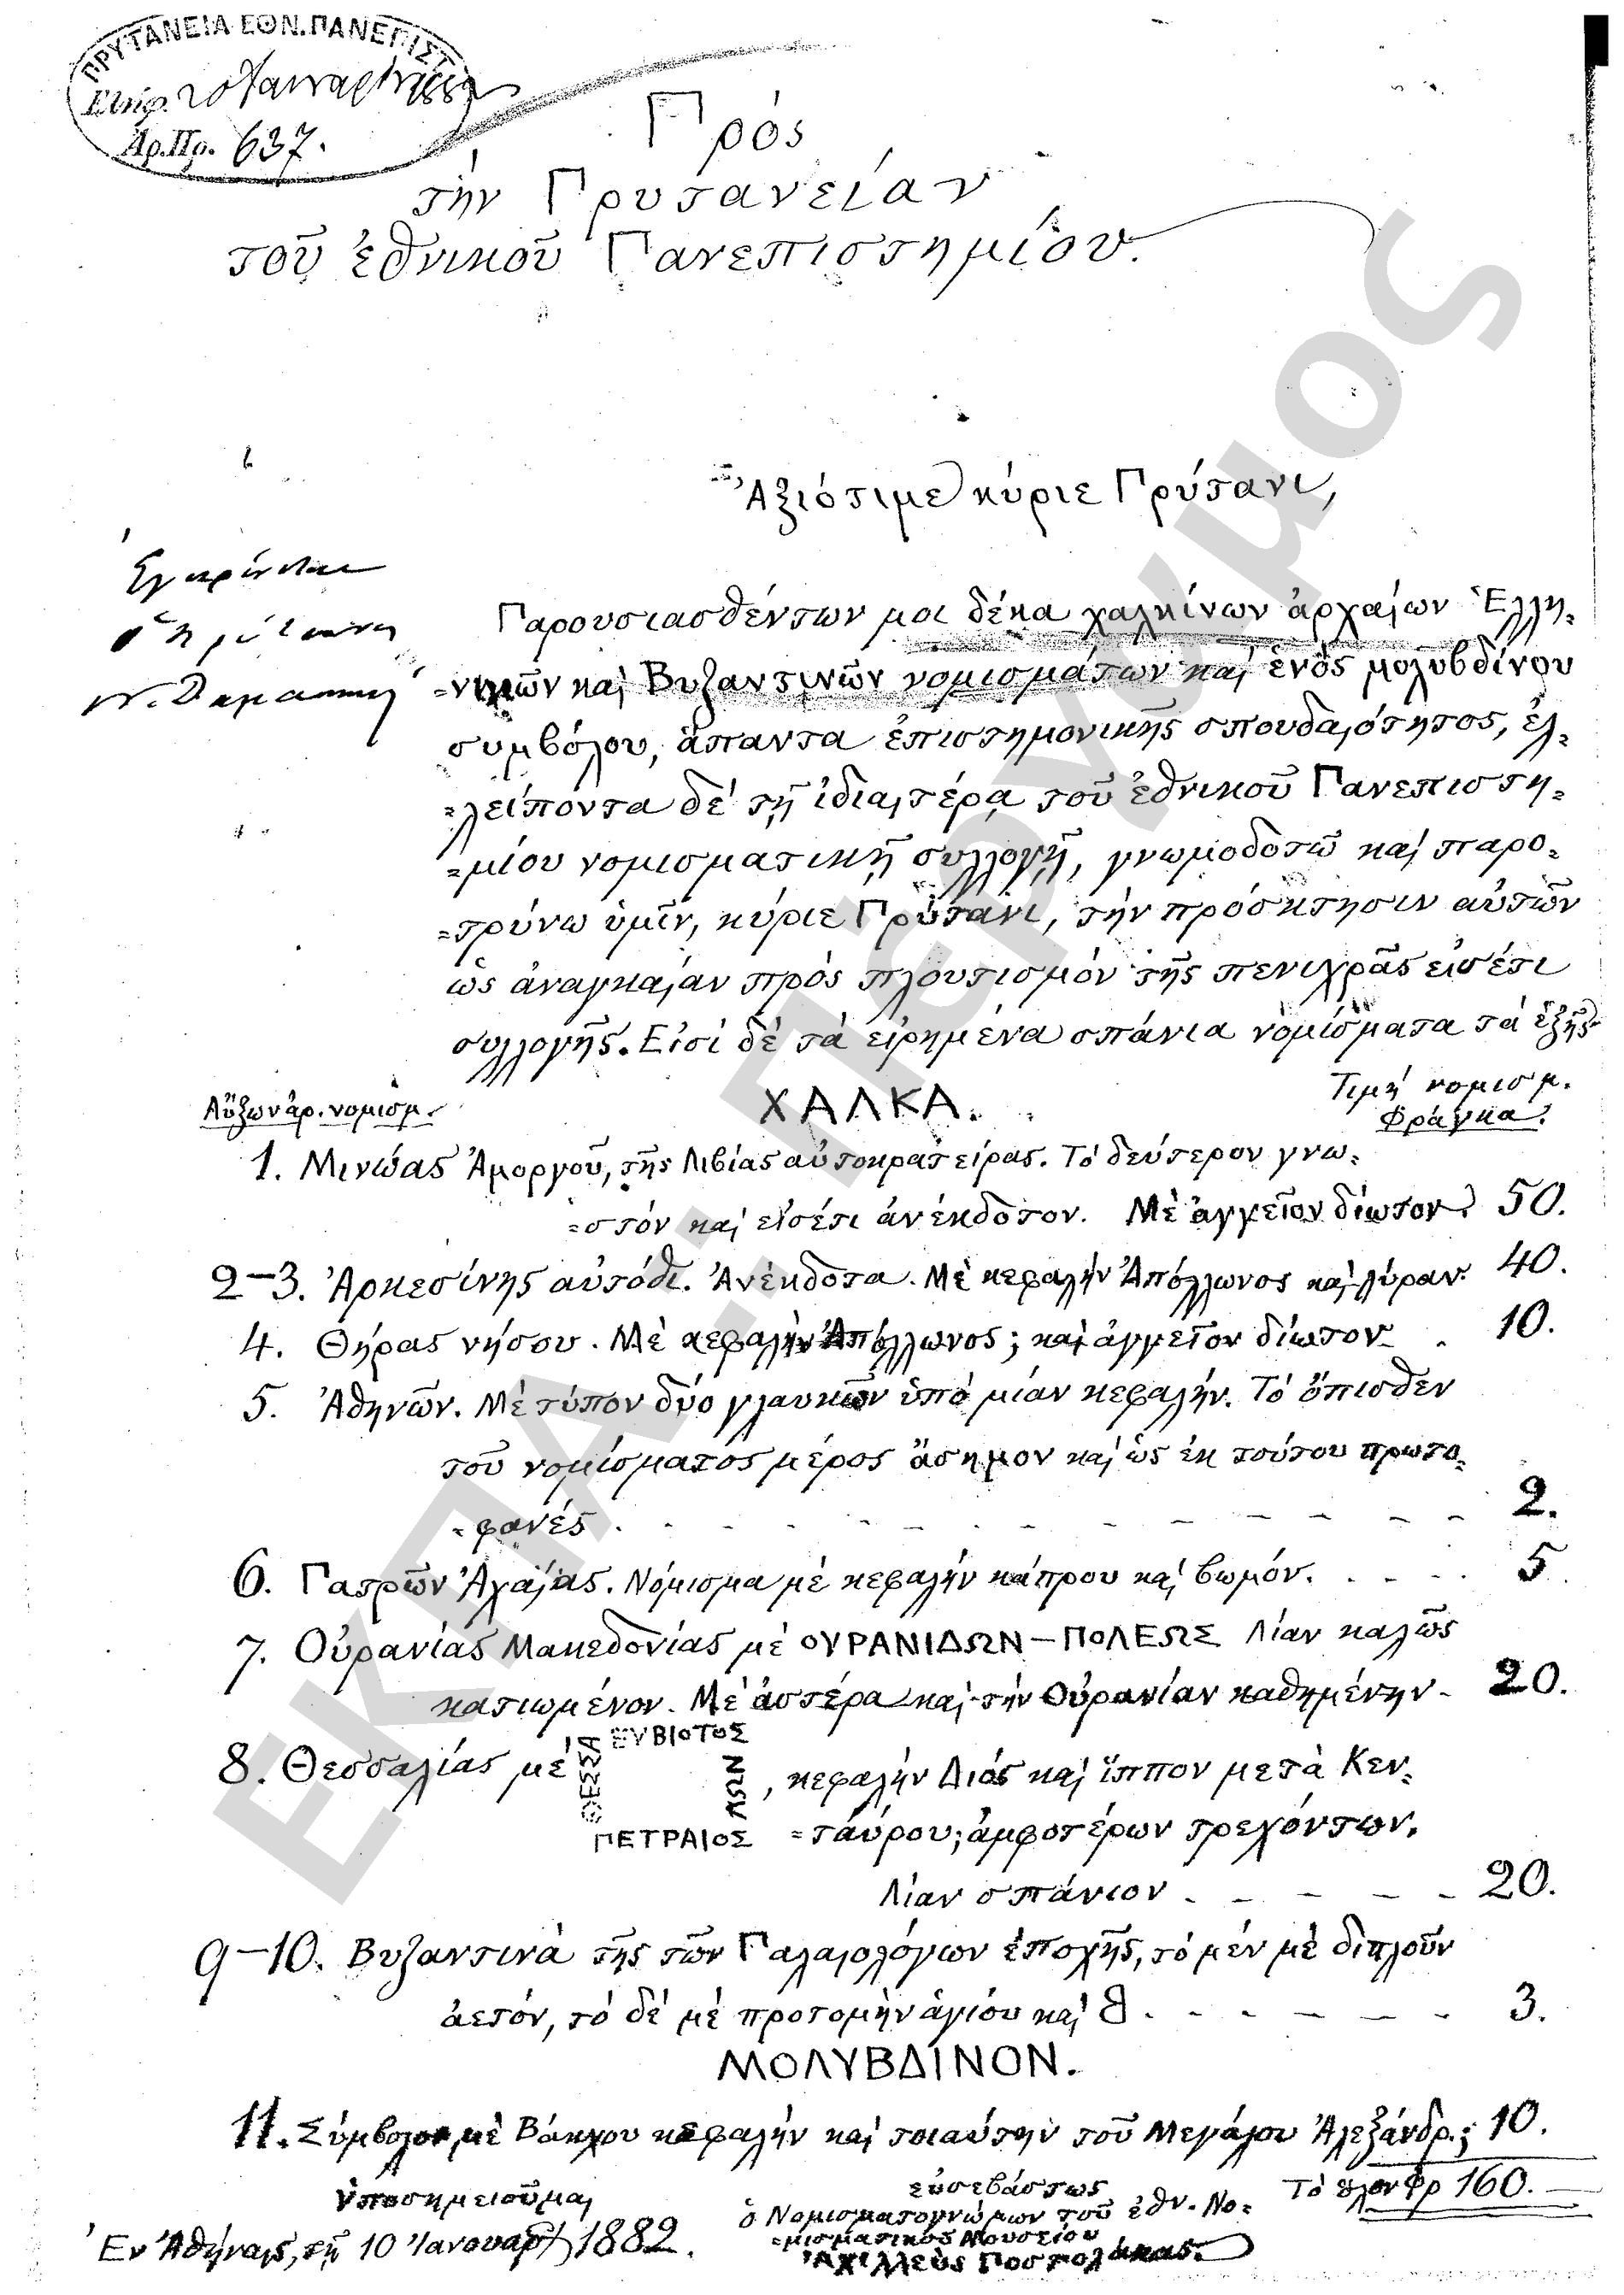 ΠΡΥΤΑΝΕΙΑ ΕΘΝ. ΠΑΝΕΠΙΣΤ
Ἀρ. Πρ. 637.
Πρὸς
τὴν Πρυτανείαν
τοῦ ἐθνικοῦ Πανεπιστημίου.
Ἀξιότιμε κύριε Πρύτανι,
Ἐγκρίνεται
ὁ Πρύτανις
Παρουσιασθέντων μοι δέκα χαλκίνων ἀρχαίων Ἑλλη=
=νικῶν καὶ Βυζαντινῶν νομισμάτων καὶ ἑνὸς μολυβδίνου
συμβόλου, ἅπαντα ἐπιστημονικῆς σπουδαιότητος, ἐλ=
=λείποντα δὲ τῇ ἰδιαιτέρᾳ τοῦ ἐθνικοῦ Πανεπιστη=
=μίου νομισματικῇ συλλογῇ, γνωμοδοτῶ καὶ παρο=
=τρύνω ὑμῖν, κύριε Πρύτανι, τὴν πρόσκτησιν αὐτῶν
ὡς ἀναγκαίαν πρὸς πλουτισμὸν τῆς πενιχρᾶς εἰσέτι
συλλογῆς. Εἰσὶ δὲ τὰ εἰρημένα σπάνια νομίσματα τὰ ἑξῆς
Αὔξων ἀρ. νομισμ.
ΧΑΛΚΑ.
Τιμὴ νομισμ.
Φράγκα.
1. Μινώας Ἀμοργοῦ, τῆς Λιβίας αὐτοκρατείρας. Τὸ δεύτερον γνω=
=στὸν καὶ εἰσέτι ἀνέκδοτον. Μὲ ἀγγεῖον δίωτον. 50.
2-3. Ἀρκεσίνης αὐτόθι. Ἀνέκδοτα. Μὲ κεφαλὴν Ἀπόλλωνος καὶ λύραν. 40.
4. Θήρας νήσου. Μὲ κεφαλὴν Ἀπόλλωνος; καὶ ἀγγεῖον δίωτον 10.
5. Ἀθηνῶν. Μὲ τύπον δύο γλαυκῶν ὑπὸ μίαν κεφαλήν. Τὸ ὄπισθεν
τοῦ νομίσματος μέρος ἄσημον καὶ ὡς ἐκ τούτου πρωτο=
=φανές . - - - - - - - - - - - - 2.
6. Πατρῶν Ἀχαΐας. Νόμισμα μὲ κεφαλὴν κάπρου καὶ βωμόν. . - - . 5
7. Οὐρανίας Μακεδονίας μὲ ΟΥΡΑΝΙΔΩΝ-ΠΟΛΕΩΣ Λίαν καλῶς
κατιωμένον. Μὲ ἀστέρα καὶ τὴν Οὐρανίαν καθημένην - 20.
8. Θεσσαλίας μὲ ΘΕΣΣΑ ΕΥΒΙΟΤΟΣ ΛΩΝ, κεφαλὴν Διὸς καὶ ἵππον μετὰ Κεν=
ΠΕΤΡΑΙΟΣ =ταύρου; ἀμφοτέρων τρεχόντων.
Λίαν σπάνιον - - - - - 20.
9-10. Βυζαντινὰ τῆς τῶν Παλαιολόγων ἐποχῆς, τὸ μὲν μὲ διπλοῦν
ἀετόν, τὸ δὲ μὲ προτομὴν ἁγίου καὶ Β . - - - - - 3.
ΜΟΛΥΒΔΙΝΟΝ.
11. Σύμβολον μὲ Βάκχου κεφαλὴν καὶ τοιαύτην τοῦ Μεγάλου Ἀλεξάνδρ.; 10.
Τὸ ὅλον Φρ 160.
ὑποσημειοῦμαι
εὐσεβάστως
ὁ Νομισματογνώμων τοῦ ἐθν. Νο=
=μισματικοῦ Μουσείου
Ἀχιλλεὺς Ποστολάκας
Ἐν Ἀθήναις, τῇ 10 Ἰανουαρ. 1882.
ΕΚΠΑ.: Πέργαμος